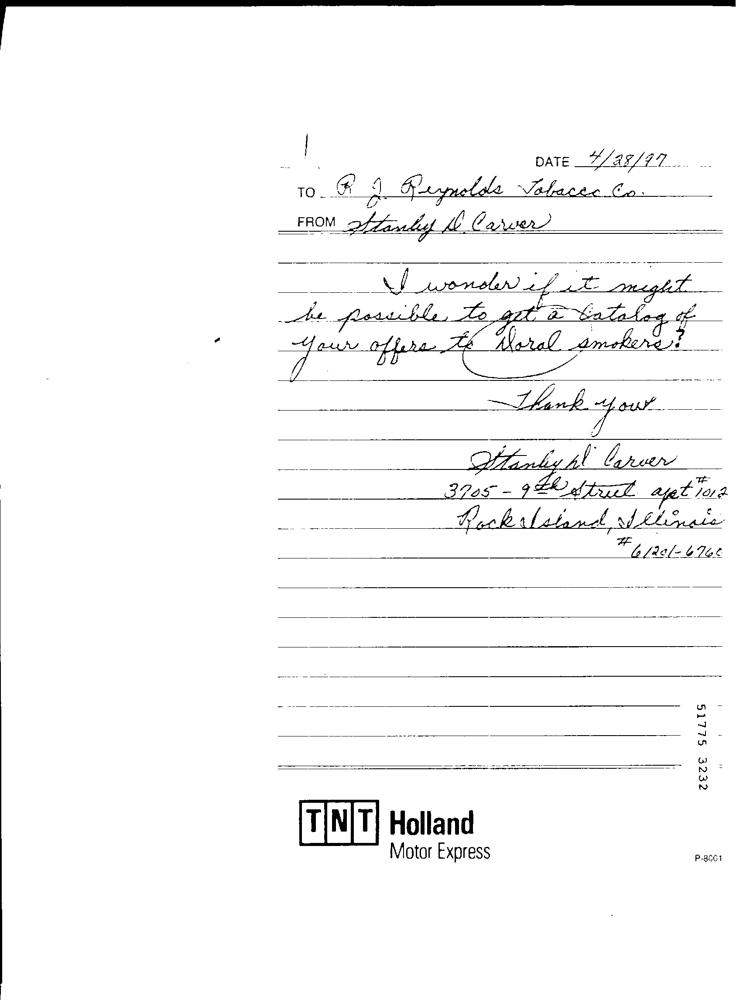 DATE 4/28/97
TO R J. Reynolds Tobacco Co.
FROM Stanley D. Carver
I wonder if it might
be possible to get a catalog of
your offers to Doral smokers?
Thank you
Stanley D. Carver
3705 - 9th Street apt #1012
Rock Island, Illinois
#61201-6760
51775 3232
TNT Holland
Motor Express
P-8001